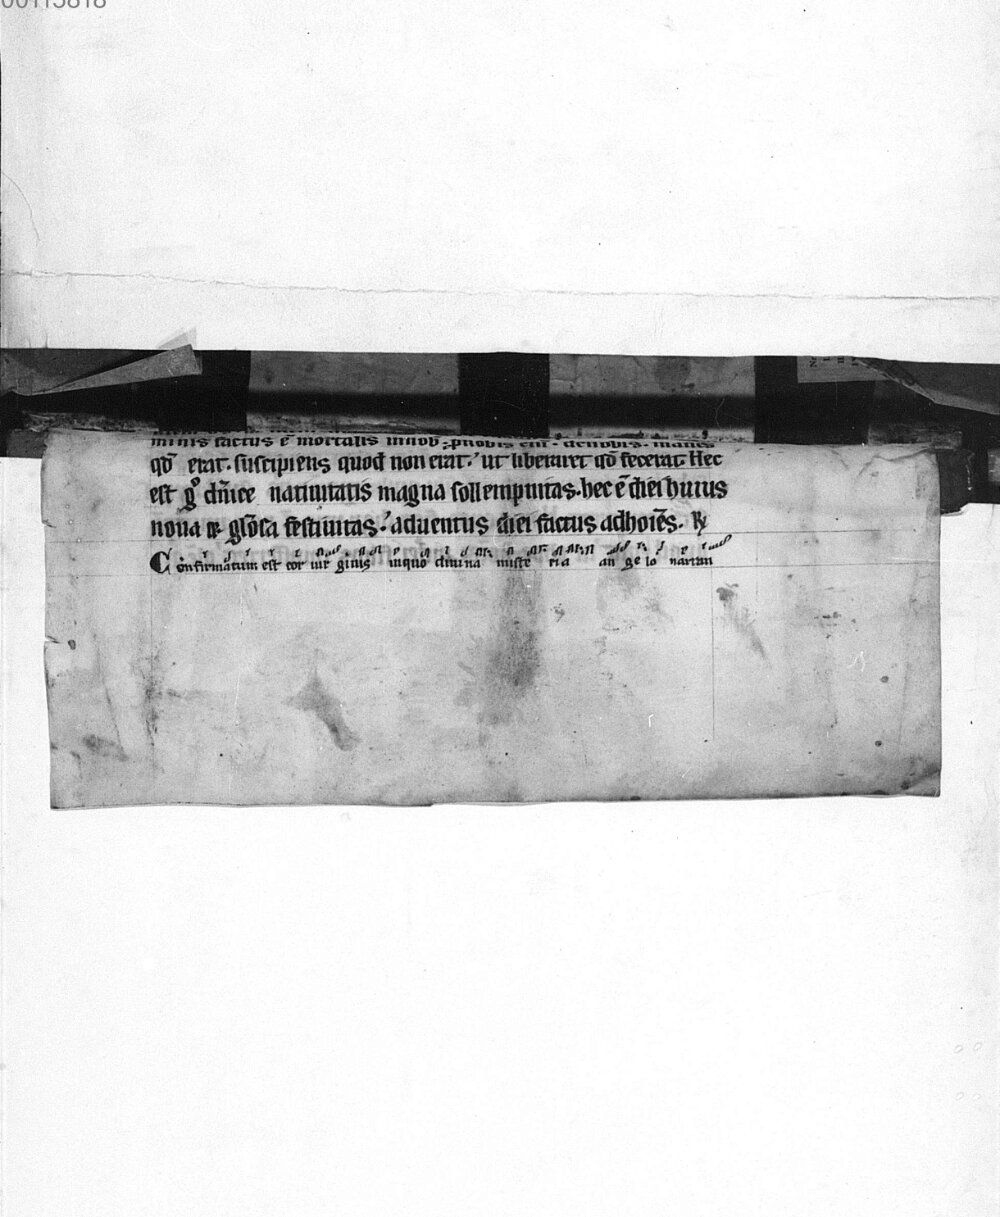 00115818
minis factus ē mortalis innob ꝓnobis eni. denobis. manēs
qđ erat. suscipiens quod non erat. ut liberaret qđ fecerat. Hec
est gͦ dn̄ice natiuitatis magna sollempnitas. hec ē diei huius
noua ⁊ gl̄osa festiuitas. aduentus diei factus adhoīes. ℟
Confirmatum est cor uir ginis inquo diuina miste ria an ge lo narran